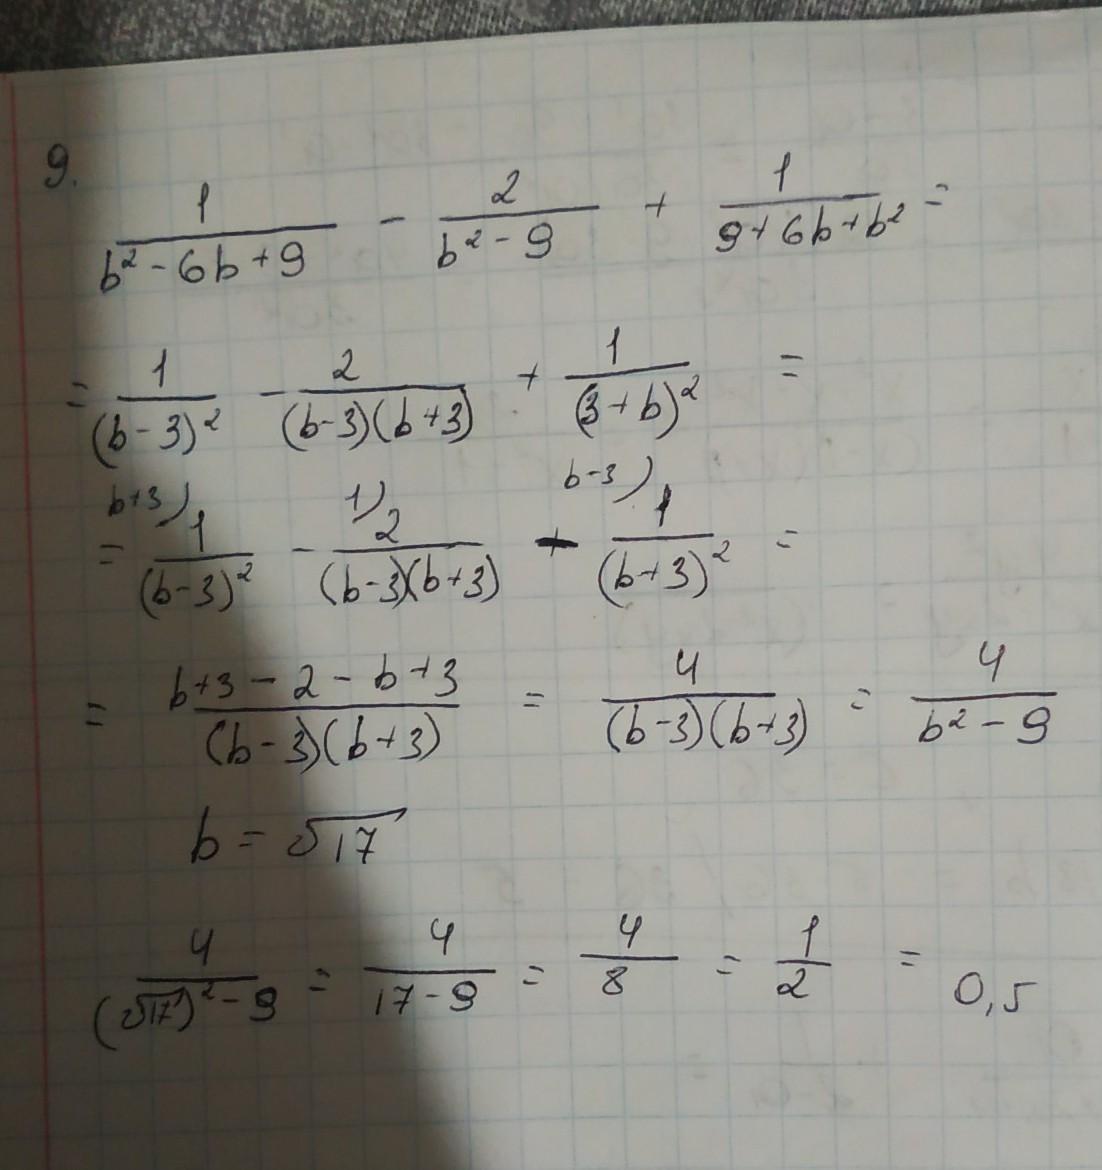 9.
1/(b² - 6b + 9) - 2/(b² - 9) + 1/(9 + 6b + b²) =
= 1/(b - 3)² - 2/((b-3)(b+3)) + 1/(3 + b)² =
b+3) 1) b-3)
= 1/(b-3)² - 2/((b-3)(b+3)) + 1/(b+3)² =
= (b+3 - 2 - b + 3)/((b-3)(b+3)) = 4/((b-3)(b+3)) = 4/(b² - 9)
b = √17
4/((√17)² - 9) = 4/(17 - 9) = 4/8 = 1/2 = 0,5